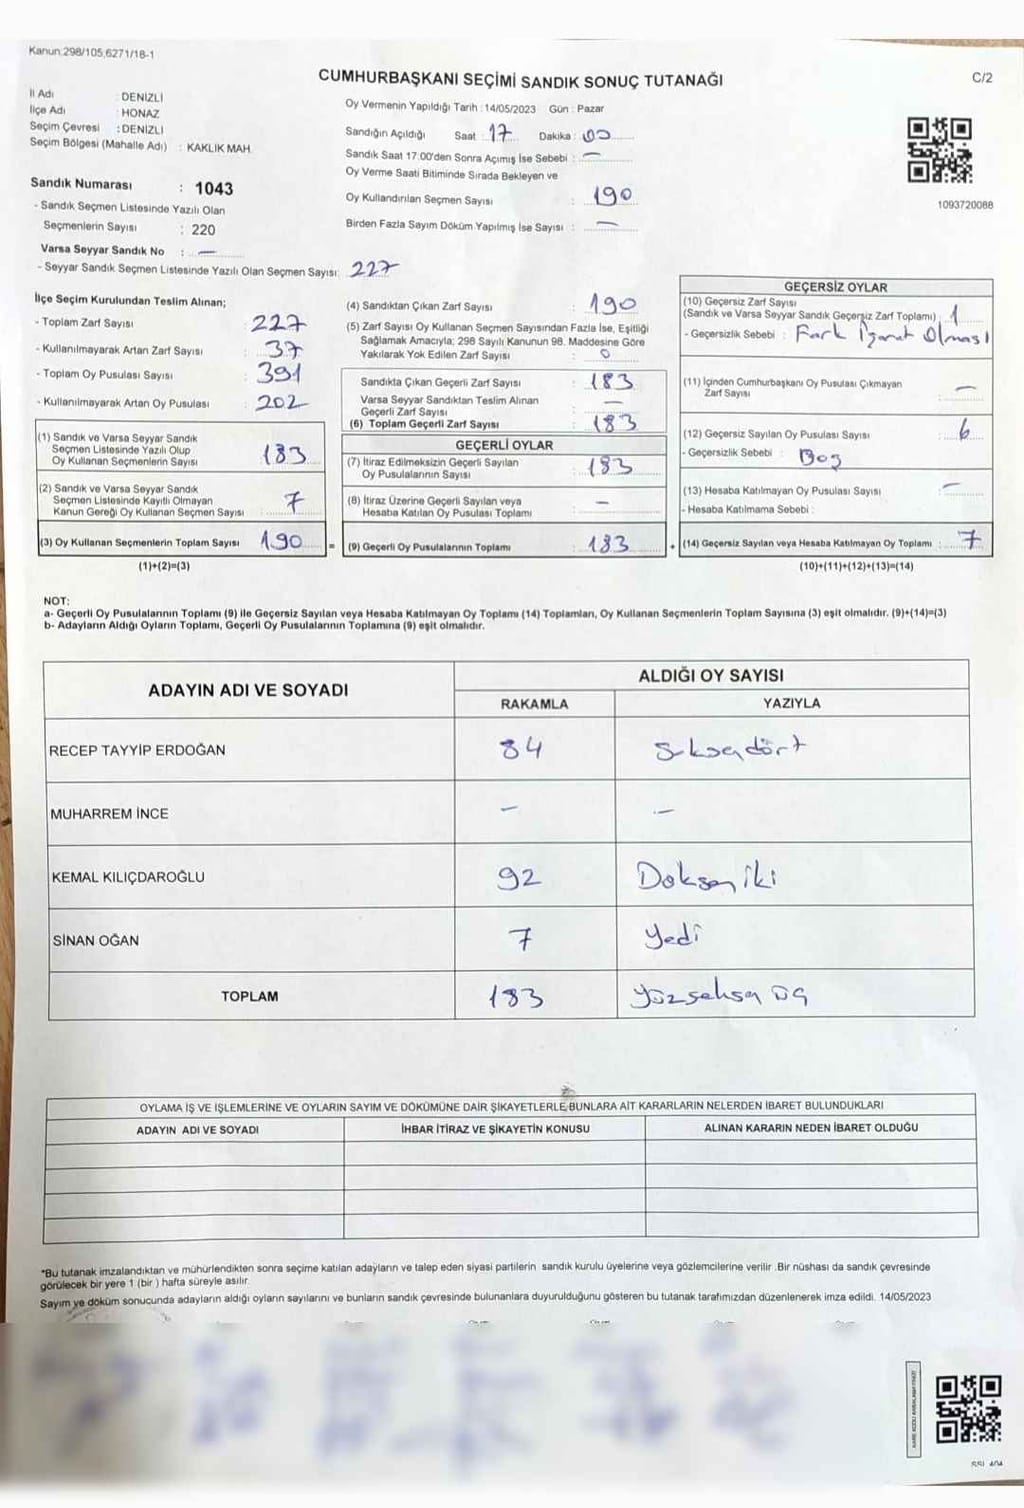 Kanun:298/105,6271/18-1
CUMHURBAŞKANI SEÇİMİ SANDIK SONUÇ TUTANAĞI
C/2
İl Adı : DENİZLİ
İlçe Adı : HONAZ
Seçim Çevresi : DENİZLİ
Seçim Bölgesi (Mahalle Adı) : KAKLIK MAH.
Oy Vermenin Yapıldığı Tarih : 14/05/2023 Gün : Pazar
Sandığın Açıldığı Saat : 17 Dakika : 00
Sandık Saat 17:00'den Sonra Açımış İse Sebebi : —
Oy Verme Saati Bitiminde Sırada Bekleyen ve
Oy Kullandırılan Seçmen Sayısı : 190
Birden Fazla Sayım Döküm Yapılmış İse Sayısı : —
1093720088
Sandık Numarası : 1043
- Sandık Seçmen Listesinde Yazılı Olan
Seçmenlerin Sayısı : 220
Varsa Seyyar Sandık No : —
- Seyyar Sandık Seçmen Listesinde Yazılı Olan Seçmen Sayısı: 227
İlçe Seçim Kurulundan Teslim Alınan;
- Toplam Zarf Sayısı : 227
- Kullanılmayarak Artan Zarf Sayısı : 37
- Toplam Oy Pusulası Sayısı : 391
- Kullanılmayarak Artan Oy Pusulası : 202
(1) Sandık ve Varsa Seyyar Sandık
Seçmen Listesinde Yazılı Olup
Oy Kullanan Seçmenlerin Sayısı : 183
(2) Sandık ve Varsa Seyyar Sandık
Seçmen Listesinde Kayıtlı Olmayan
Kanun Gereği Oy Kullanan Seçmen Sayısı : 7
(3) Oy Kullanan Seçmenlerin Toplam Sayısı : 190
(1)+(2)=(3)
(4) Sandıktan Çıkan Zarf Sayısı : 190
(5) Zarf Sayısı Oy Kullanan Seçmen Sayısından Fazla İse, Eşitliği
Sağlamak Amacıyla; 298 Sayılı Kanunun 98. Maddesine Göre
Yakılarak Yok Edilen Zarf Sayısı : 0
Sandıkta Çıkan Geçerli Zarf Sayısı : 183
Varsa Seyyar Sandıktan Teslim Alınan
Geçerli Zarf Sayısı : —
(6) Toplam Geçerli Zarf Sayısı : 183
GEÇERLİ OYLAR
(7) İtiraz Edilmeksizin Geçerli Sayılan
Oy Pusulalarının Sayısı : 183
(8) İtiraz Üzerine Geçerli Sayılan veya
Hesaba Katılan Oy Pusulası Toplamı : —
= (9) Geçerli Oy Pusulalarının Toplamı : 183
GEÇERSİZ OYLAR
(10) Geçersiz Zarf Sayısı
(Sandık ve Varsa Seyyar Sandık Geçersiz Zarf Toplamı) : 1
- Geçersizlik Sebebi : Fark İşaret Olması
(11) İçinden Cumhurbaşkanı Oy Pusulası Çıkmayan
Zarf Sayısı : —
(12) Geçersiz Sayılan Oy Pusulası Sayısı : 6
- Geçersizlik Sebebi : Boş
(13) Hesaba Katılmayan Oy Pusulası Sayısı : —
- Hesaba Katılmama Sebebi :
+ (14) Geçersiz Sayılan veya Hesaba Katılmayan Oy Toplamı : 7
(10)+(11)+(12)+(13)=(14)
NOT:
a- Geçerli Oy Pusulalarının Toplamı (9) ile Geçersiz Sayılan veya Hesaba Katılmayan Oy Toplamı (14) Toplamları, Oy Kullanan Seçmenlerin Toplam Sayısına (3) eşit olmalıdır. (9)+(14)=(3)
b- Adayların Aldığı Oyların Toplamı, Geçerli Oy Pusulalarının Toplamına (9) eşit olmalıdır.
ADAYIN ADI VE SOYADI
ALDIĞI OY SAYISI
RAKAMLA YAZIYLA
RECEP TAYYİP ERDOĞAN 84 Seksendört
MUHARREM İNCE — —
KEMAL KILIÇDAROĞLU 92 Doksan iki
SİNAN OĞAN 7 Yedi
TOPLAM 183 Yüzseksen üç
OYLAMA İŞ VE İŞLEMLERİNE VE OYLARIN SAYIM VE DÖKÜMÜNE DAİR ŞİKAYETLERLE BUNLARA AİT KARARLARIN NELERDEN İBARET BULUNDUKLARI
ADAYIN ADI VE SOYADI İHBAR İTİRAZ VE ŞİKAYETİN KONUSU ALINAN KARARIN NEDEN İBARET OLDUĞU
*Bu tutanak imzalandıktan ve mühürlendikten sonra seçime katılan adayların ve talep eden siyasi partilerin sandık kurulu üyelerine veya gözlemcilerine verilir .Bir nüshası da sandık çevresinde
görülecek bir yere 1 (bir ) hafta süreyle asılır.
Sayım ve döküm sonucunda adayların aldığı oyların sayılarını ve bunların sandık çevresinde bulunanlara duyurulduğunu gösteren bu tutanak tarafımızdan düzenlenerek imza edildi. 14/05/2023